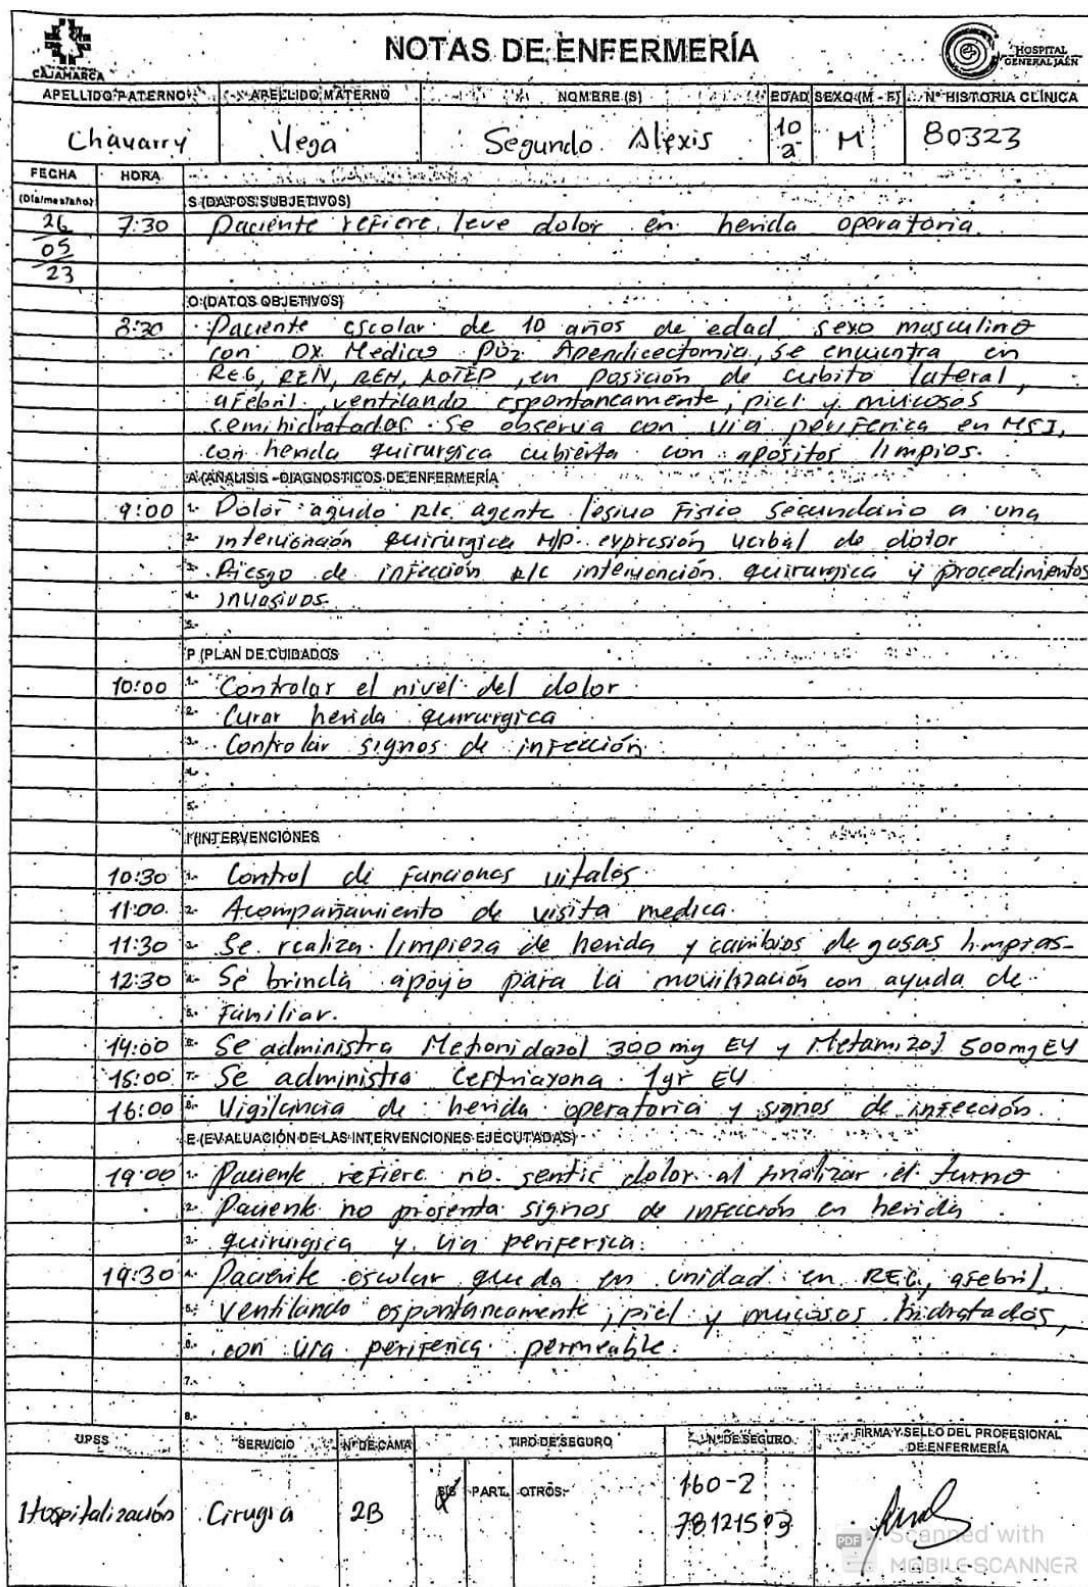 CAJAMARCA
NOTAS DE ENFERMERÍA
HOSPITAL
GENERAL JAÉN
APELLIDO PATERNO APELLIDO MATERNO NOMBRE (S) EDAD SEXO (M - F) Nº HISTORIA CLÍNICA
Chavarry Vega Segundo Alexis 10 a M 80323
FECHA HORA
(Día/mes/año) S (DATOS SUBJETIVOS)
26 7:30 Paciente refiere leve dolor en herida operatoria.
05
23
O (DATOS OBJETIVOS)
8:30 Paciente escolar de 10 años de edad sexo masculino
con Dx Medico Apendicectomia, se encuentra en
REG, REN, REH, LOTEP, en posición de cubito lateral,
afebril, ventilando espontaneamente, piel y mucosas
semihidratadas. Se observa con via periferica en MSI,
con herida quirurgica cubierta con apositos limpios.
A (ANALISIS - DIAGNOSTICOS DE ENFERMERÍA
9:00 1.- Dolor agudo R/c agente lesivo Fisico secundario a una
2.- intervención quirurgica M/P expresión verbal de dolor
3.- Riesgo de infección R/c intervención quirurgica y procedimientos
4.- invasivos.
5.-
P (PLAN DE CUIDADOS
10:00 1.- Controlar el nivel del dolor
2.- Curar herida quirurgica
3.- Controlar signos de infección
4.-
5.-
I (INTERVENCIONES
10:30 1.- Control de Funciones vitales
11:00 2.- Acompañamiento de visita medica.
11:30 3.- Se realiza limpieza de herida y cambios de gasas limpias-
12:30 4.- Se brinda apoyo para la movilización con ayuda de
5.- Familiar.
14:00 6.- Se administra Metronidazol 300 mg EV y Metamizol 500mg EV
15:00 7.- Se administra Ceftriaxona 1gr EV
16:00 8.- Vigilancia de herida operatoria y signos de infección.
E (EVALUACIÓN DE LAS INTERVENCIONES EJECUTADAS)
19:00 1.- Paciente refiere no sentir dolor al finalizar el turno
2.- Paciente no presenta signos de infección en herida
3.- quirurgica y via periferica.
19:30 4.- Paciente escolar queda en unidad en REG, afebril,
5.- ventilando espontaneamente, piel y mucosas hidratados,
6.- con via periferica permeable.
7.-
8.-
UPSS SERVICIO Nº DE CAMA TIPO DE SEGURO Nº DE SEGURO FIRMA Y SELLO DEL PROFESIONAL
DE ENFERMERÍA
Hospitalización Cirugia 2B SIS PART. OTROS: 160-2
78121593
PDF Scanned with
MOBILE SCANNER